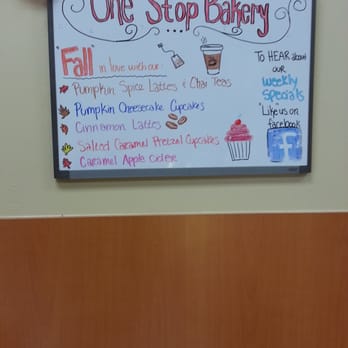 One Stop Bakery
"Fall" in love with our:
Pumpkin Spice Lattes & Chai Teas
Pumpkin Cheesecake Cupcakes
Cinnamon Lattes
Salted Caramel Pretzel Cupcakes
Caramel Apple Cider
To HEAR about
our
weekly
specials
"Like" us on
facebook
f